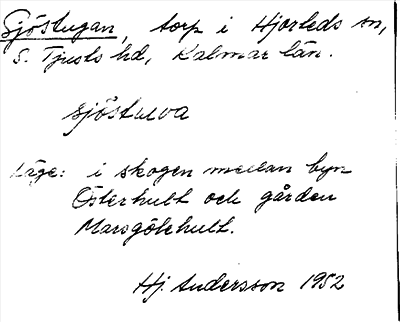 Sjöstugan, torp i Hjorteds sn,
S. Tjusts hd, Kalmar län.
sjöstuva
Läge: i skogen mellan byn
Österhult och gården
Marsgölehult.
Hj. Andersson 1952